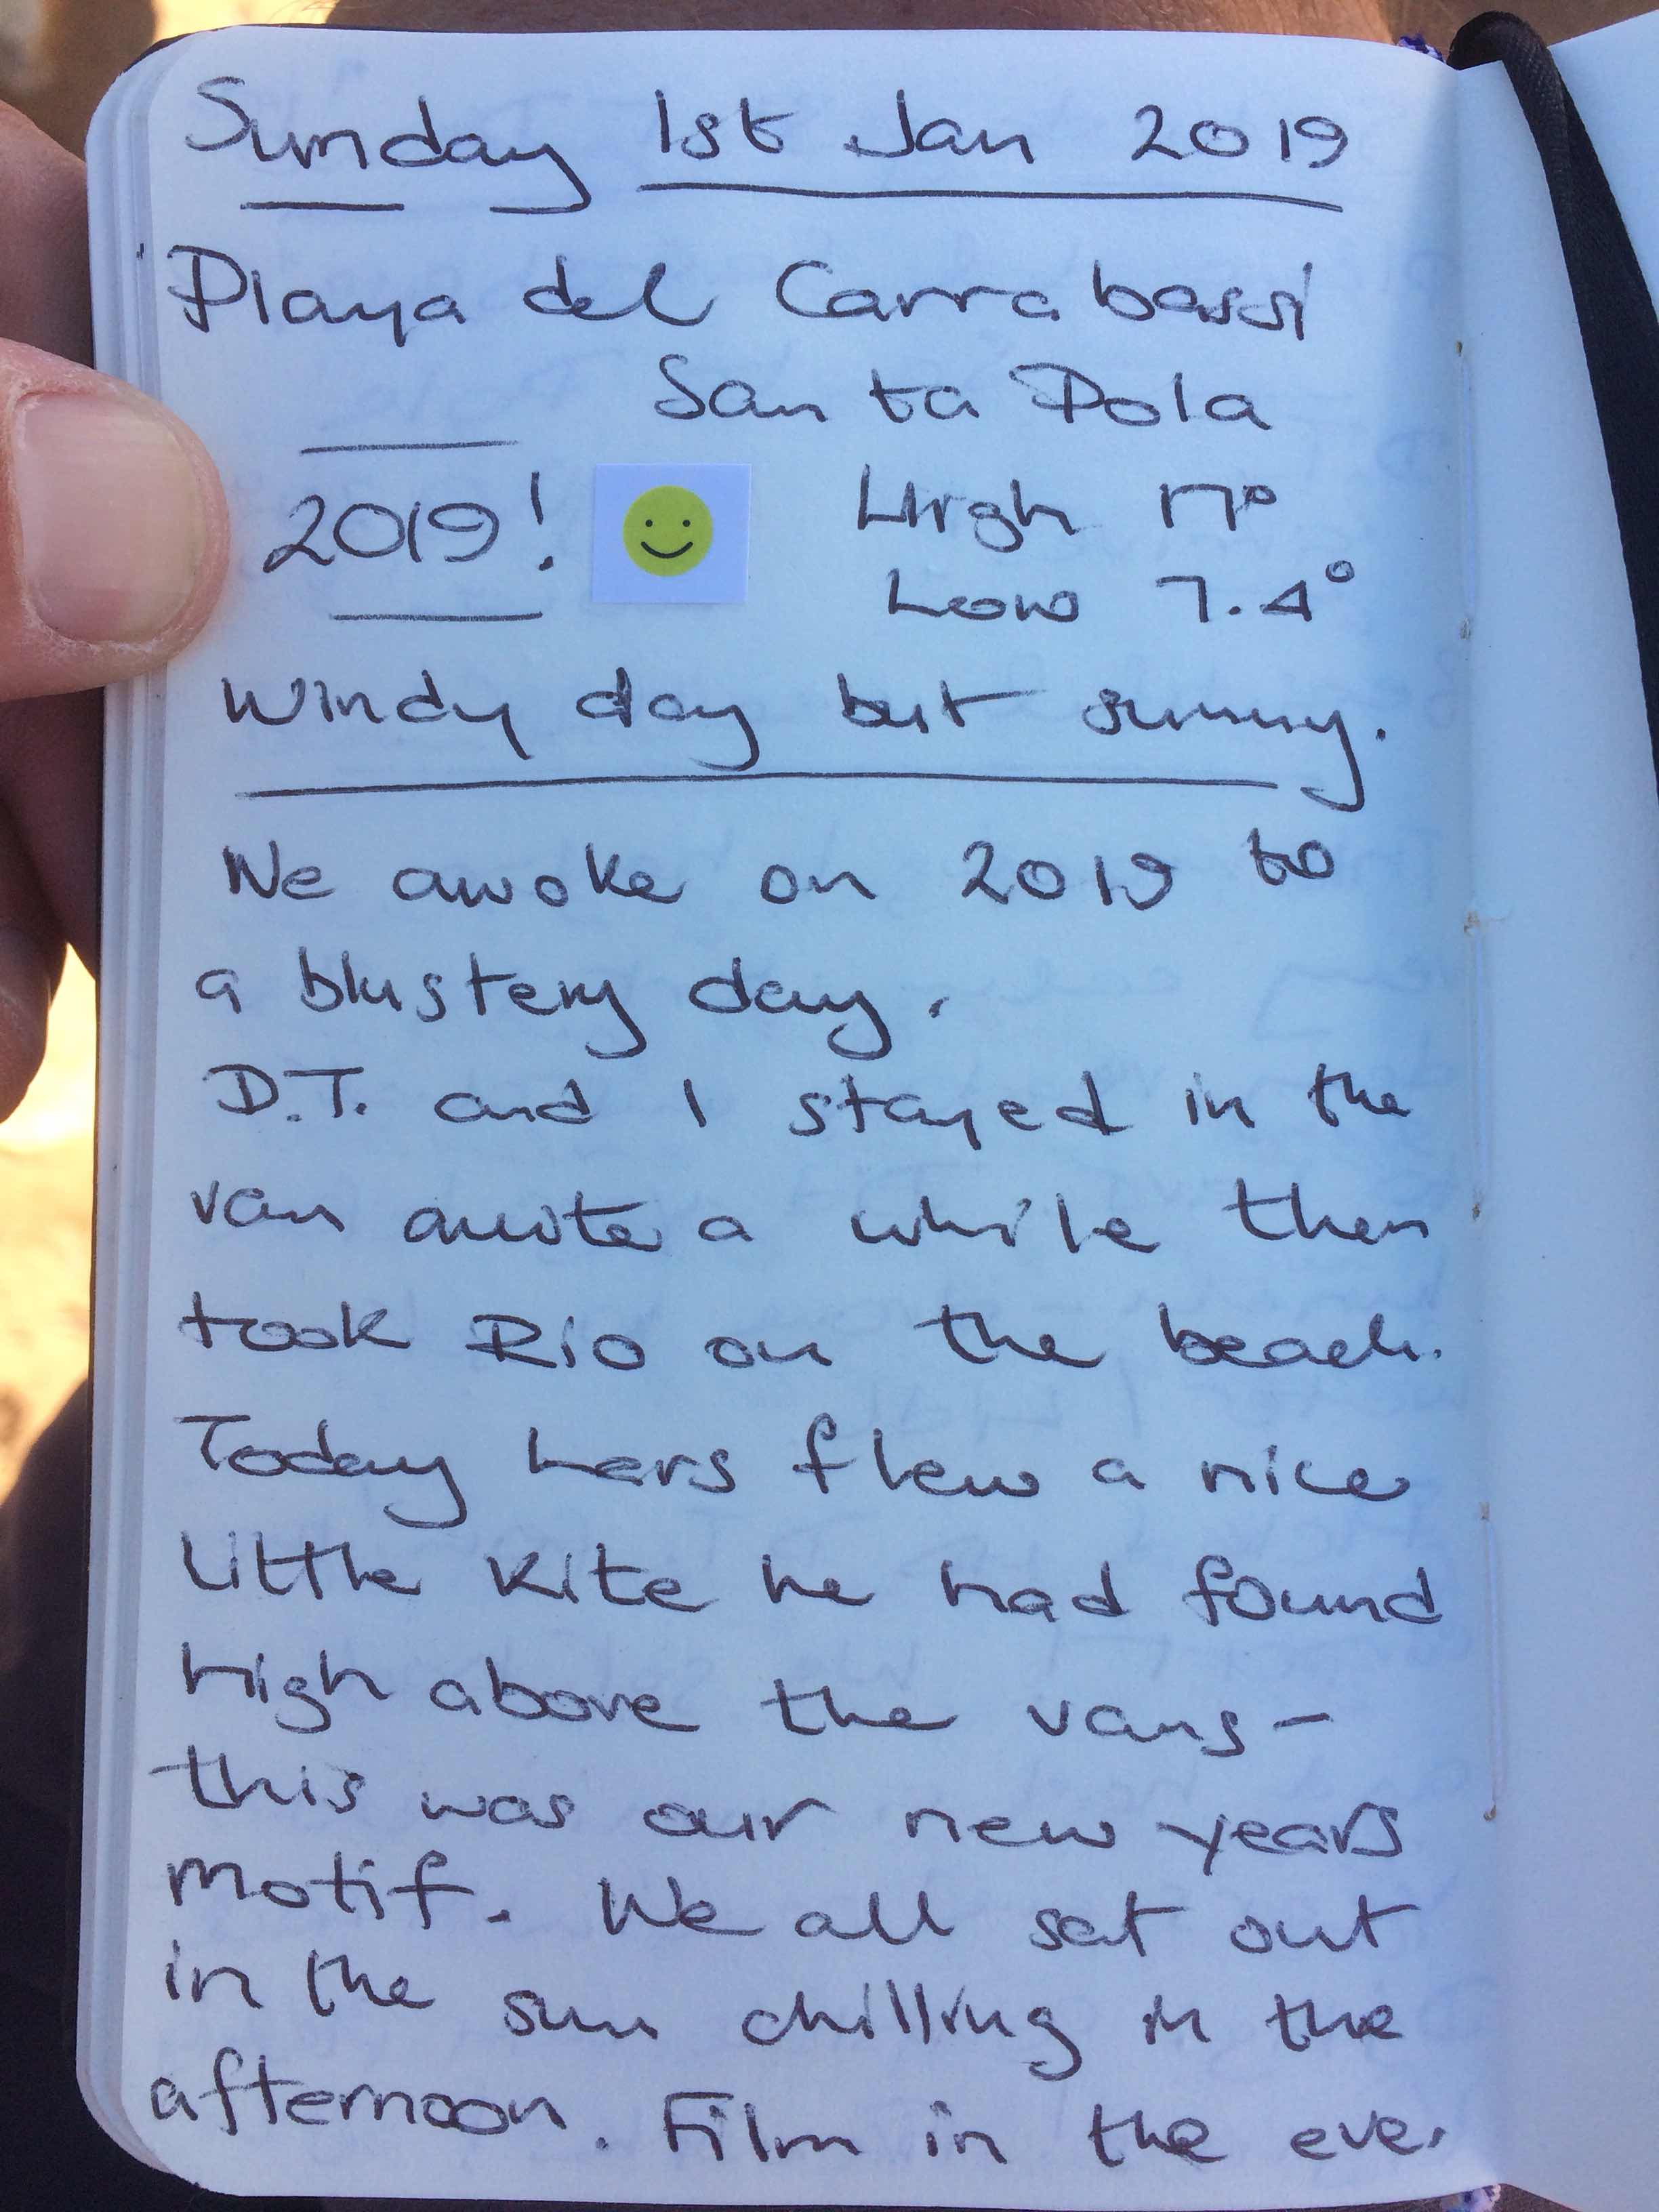 Sunday 1st Jan 2019
Playa del Carrabassi
Santa Pola
2019! High 17°
Low 7.4°
Windy day but sunny.
We awoke on 2019 to
a blustery day.
D.T. and I stayed in the
van quite a while then
took Rio on the beach.
Today Lars flew a nice
little kite he had found
high above the vans -
this was our new years
motif. We all sat out
in the sun chilling in the
afternoon. Film in the eve.